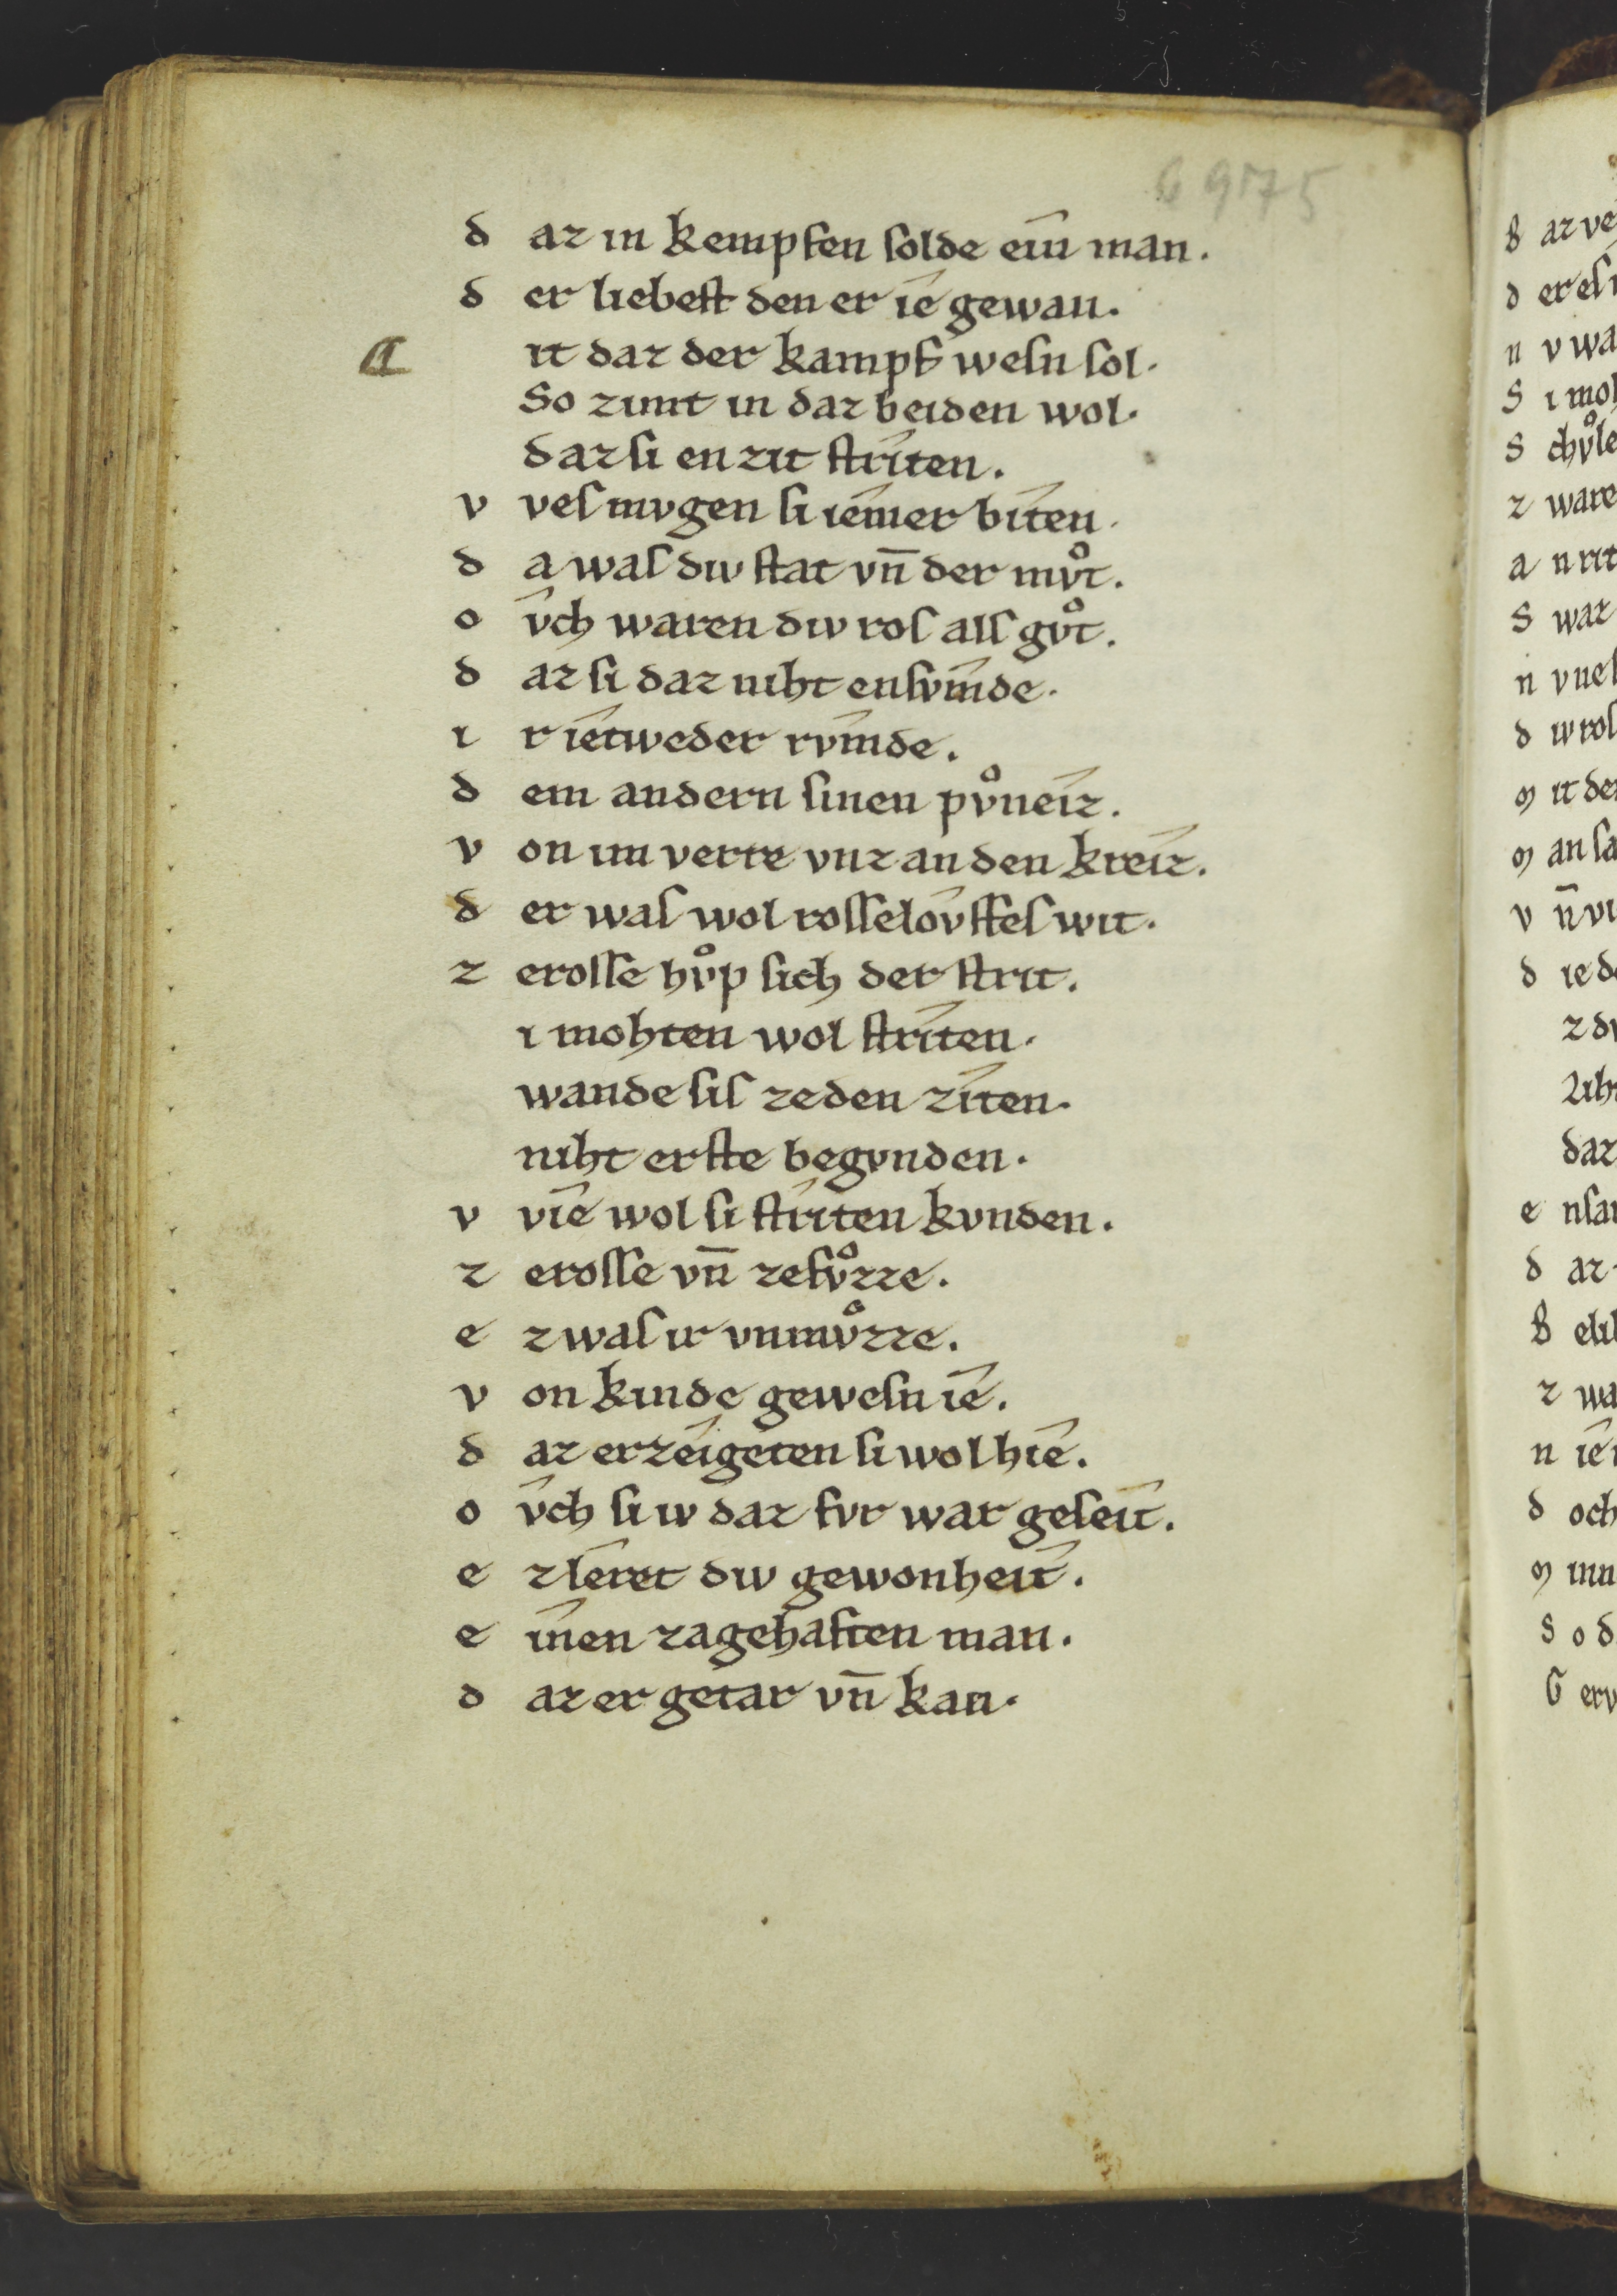 6975
d az in kempfen solde eîn man.
d er liebest den er îe gewan.
a
it daz der kampf wesn sol.
So zimt in daz beiden wol.
dazsi enzit strîten.
v ves mvgen si îemer bîten.
d a was diu stat vn̄ der mvͦt.
o v̂ch waren diu ros alls gvͦt.
d az si daz niht ensv̂mde.
i r îetweder rv̂mde.
d em andern sinen pvͦneîz.
v on im verre vnz an den kreîz.
d er was wol rosselôvffes wit.
z erosse hvͦp sich der strit.
i mohten wol strîten.
wande sis zeden zîten.
niht erste begvnden.
v vîe wol si strîten kvnden.
z erosse vn̄ zefvͦzze.
e zwas ir vnmvͦzze.
v on kinde gewesn îe.
d az erzêigeten si wol hîe.
o v̂ch si iv daz fvr war geseît.
e z lêret diu gewonheît.
e înen zagehaften man.
d az er getar vn̄ kan.
B ar ve
d er es
n v wa
S i moh
S chvͦle
z ware
a n rit
S waz
n v ne
d iu ros
m it de
m an sa
v n̄ vi
d ie d
z dv
Nih
daz
e nsa
d az
B eli
z wa
n îe
d och
m inn
S o d
G erv